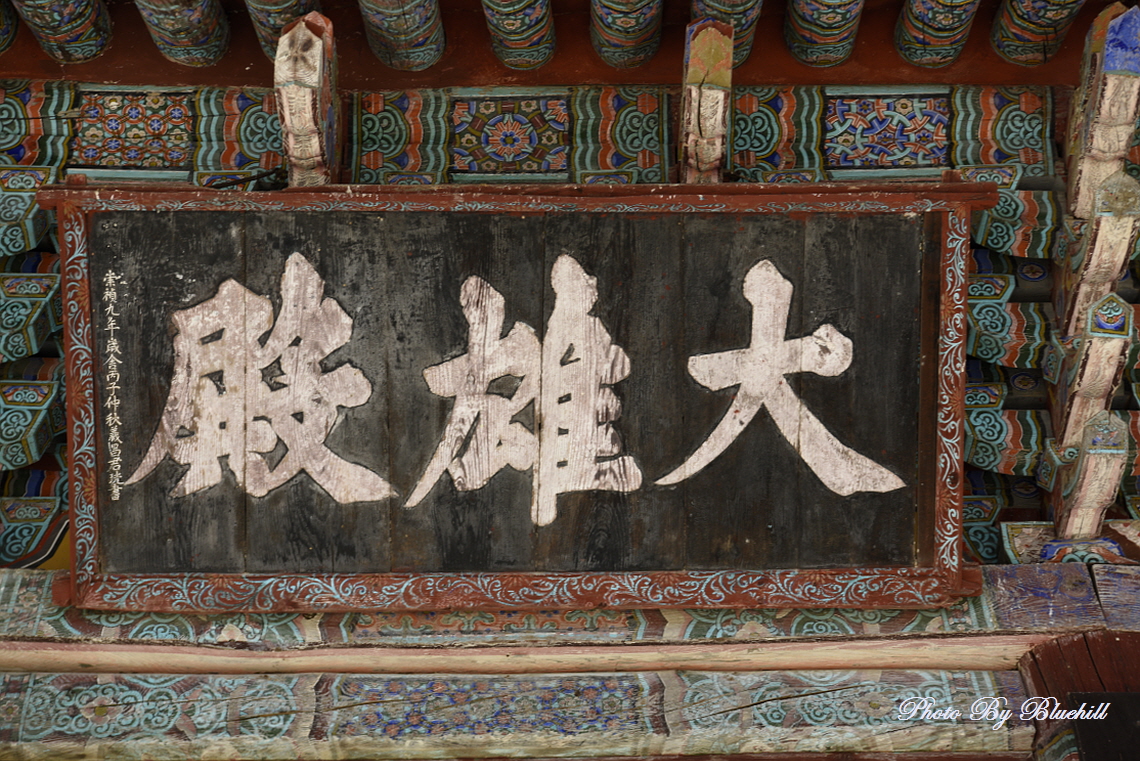 大雄殿
崇禎九年歲舍丙子仲秋義昌君珖書
Photo By Bluehill